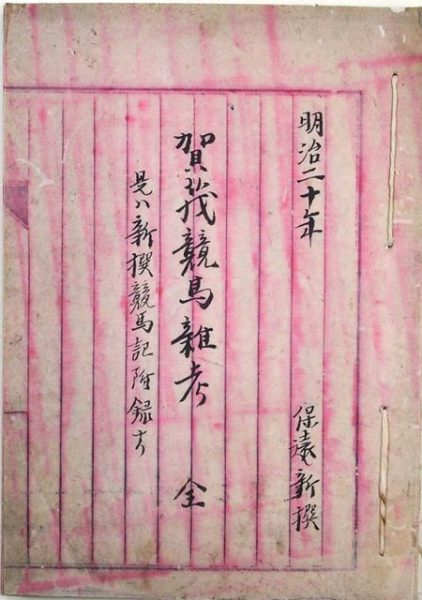 明治二十年
保遠新撰
賀茂競馬雜考 全
是ハ新撰競馬記附録ナリ